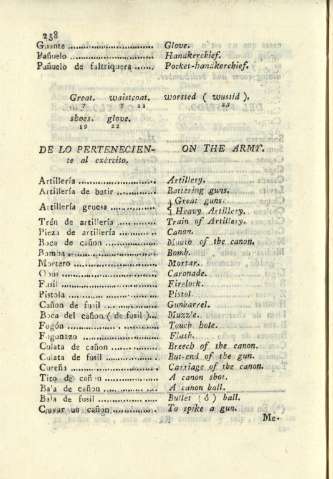 258
Guante .......... Glove.
Pañuelo .......... Handkerchief.
Pañuelo de faltriquera ...... Pocket-handkerchief.
Great. waistcoat. worsted ( wustid ).
7 7 11 23
shoes. glove.
19 22
DE LO PERTENECIEN- ON THE ARMY.
te al exército.
Artillería .......... Artillery.
Artillería de batir .......... Battering guns.
Artillería gruesa .......... { Great guns.
{ Heavy Artillery.
Trén de artillería .......... Train of Artillery.
Pieza de artillería .......... Canon.
Boca de cañon .......... of the canon.
Bomba .......... Bomb.
Mortero .......... Mortar.
Obus .......... Caronade.
Fusil .......... Firelock.
Pistola .......... Pistol.
Cañon de fusil .......... Gunbarrel.
Boca del cañon ( de fusil )... Muzzle.
Fogón .......... Touch hole.
Fogonazo .......... Flash.
Culata de cañon .......... Breech of the canon.
Culata de fusil .......... But-end of the gun.
Cureña .......... Carriage of the canon.
Tiro de cañon .......... A canon shot.
Bala de cañon .......... A canon ball.
Bala de fusil .......... Bullet ( ó ) ball.
Clavar un cañon .......... To spike a gun.
Me-